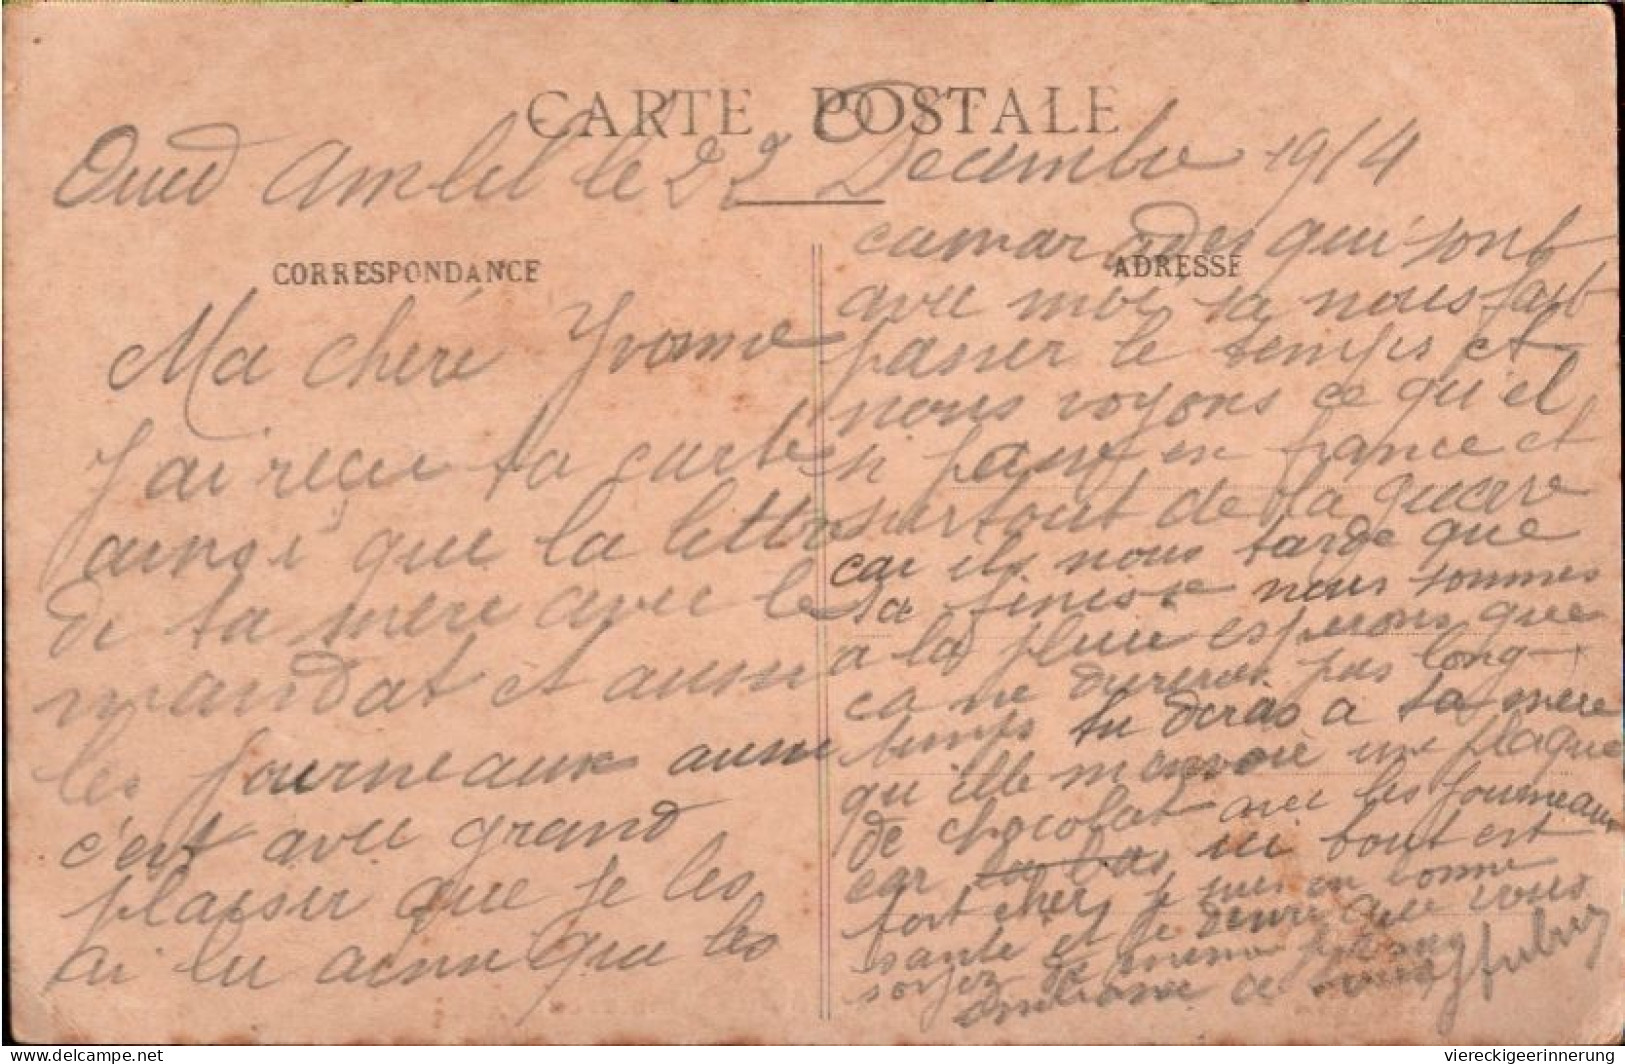 CARTE POSTALE
Oued Amlil le 22 Decembre 1914
CORRESPONDANCE
Ma cheré Yvonne
J'ai reçu ta carte
ainsi que la lettre
de ta mere avec le
mandat et aussi
les journeaux aussi
c'est avec grand
plaisir que je les
ai lu ainsi que les
ADRESSE
camarades qui sont
avec moi sa nous fait
passer le temps et
nous voyons ce qu'il
si passe en france et
surtout de la guerre
car ils nous tarde que
sa finisse nous sommes
a la pluie esperons que
ca ne durerat pas long-
temps tu diras a ta mere
qu'ille m'envoie une plaque
de chocolat avec les journeaux
car la bas ici tout est
fort cher, je suis en bonne
santé et je desire que vous
soyez de meme
de
viereckigeerinnerung